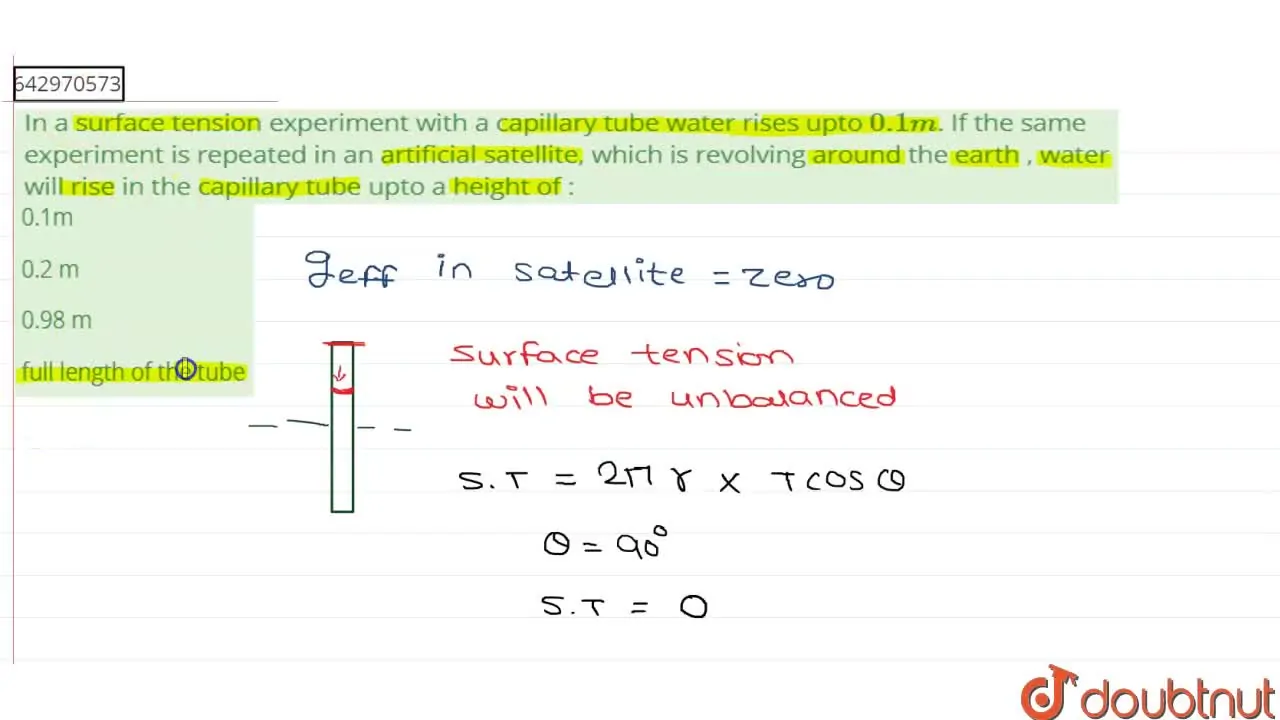 642970573
In a surface tension experiment with a capillary tube water rises upto 0.1m. If the same
experiment is repeated in an artificial satellite, which is revolving around the earth , water
will rise in the capillary tube upto a height of :
0.1m
0.2 m
0.98 m
full length of the tube
geff in satellite = zero
surface tension
will be unbalanced
S.T = 2π r × T cos θ
θ = 90°
S.T = 0
doubtnut